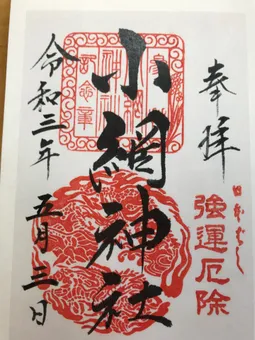 奉拝
強運厄除
小網神社
令和三年
五月三日